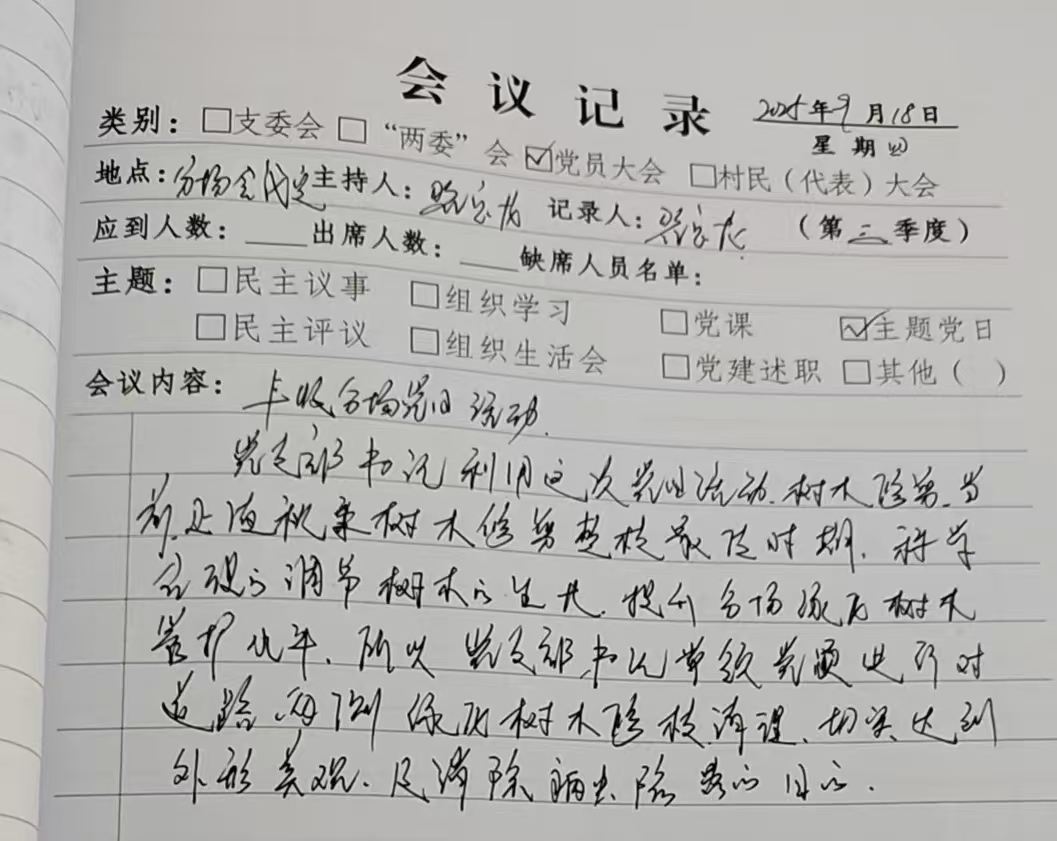 会议记录
2025年9月18日
星期四
类别：□支委会 □“两委”会 ☑党员大会 □村民（代表）大会
地点：分场会议室 主持人： 记录人： （第三季度）
应到人数：____出席人数：____缺席人员名单：
主题：□民主议事 □组织学习 □党课 ☑主题党日
□民主评议 □组织生活会 □党建述职 □其他（ ）
会议内容：丰收分场党日活动.
党支部书记利用这次党日活动.树木修剪.当
前正值秋季树木修剪整枝最佳时期.科学
合理的调节树木的生长.提升分场绿化树木
管护水平.所以党支部书记带领党员进行对
道路两侧绿化树木修枝清理.切实达到
外形美观.及清除病虫隐患的目的.